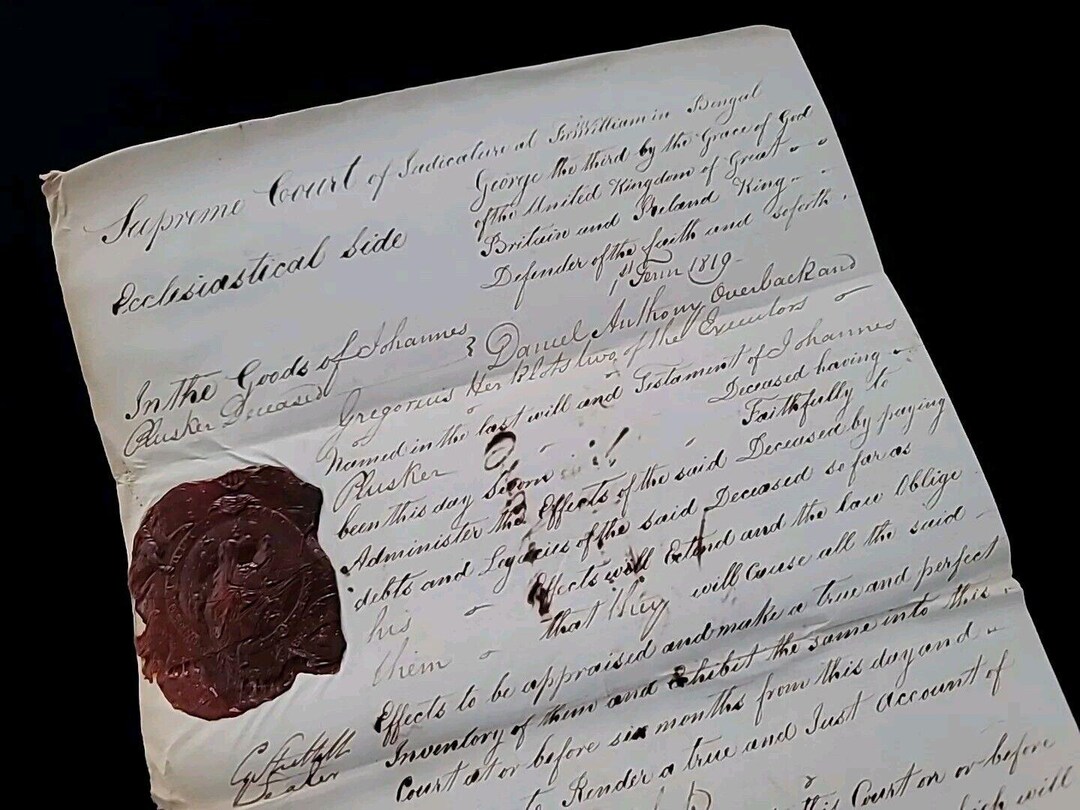 Supreme Court of Judicature at Fort William in Bengal
Ecclesiastical Side
George the third by the Grace of God
of the United Kingdom of Great
Britain and Ireland King
Defender of the faith and soforth.
1st Term 1819
In the Goods of Johannes
Plusker Deceased
Daniel Anthony Overbeck and
Gregorius Herklots two of the Executors
Named in the last will and Testament of Johannes
Plusker Deceased having
been this day Sworn Faithfully to
Administer the Effects of the said Deceased by paying
debts and Legacies of the said Deceased so far as
his Effects will Extend and the law Oblige
them that they will Cause all the said
Effects to be appraised and make a true and perfect
Inventory of them and Exhibit the same into this
Court at or before six months from this day and
to Render a true and Just Account of
this Court on or before
which will
Sealer